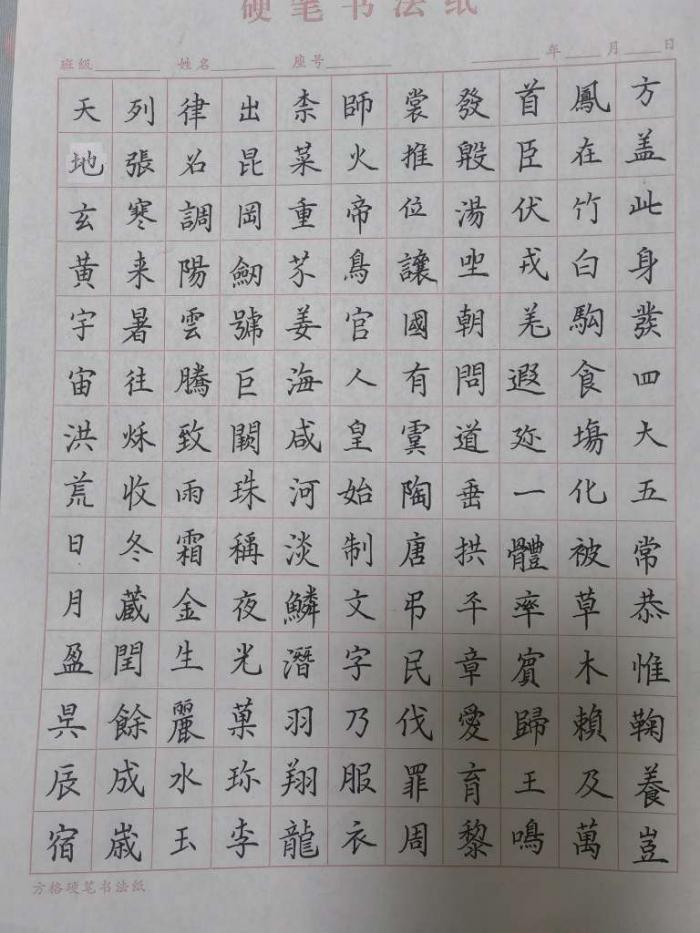 硬笔书法纸
班级 姓名 座号 年 月 日
天地玄黃宇宙洪荒日月盈昃辰宿
列張寒来暑往秌收冬蔵閏餘成歳
律吕調陽雲騰致雨霜金生麗水玉
出昆岡劒號巨闕珠稱夜光菓珎李
柰菜重芥姜海咸河淡鱗潛羽翔龍
師火帝鳥官人皇始制文字乃服衣
裳推位讓國有虞陶唐弔民伐罪周
發殷湯坐朝問道垂拱平章愛育黎
首臣伏戎羌遐迩一體率賓歸王鳴
鳳在竹白駒食場化被草木賴及萬
方盖此身發四大五常恭惟鞠養豈
方格硬笔书法纸